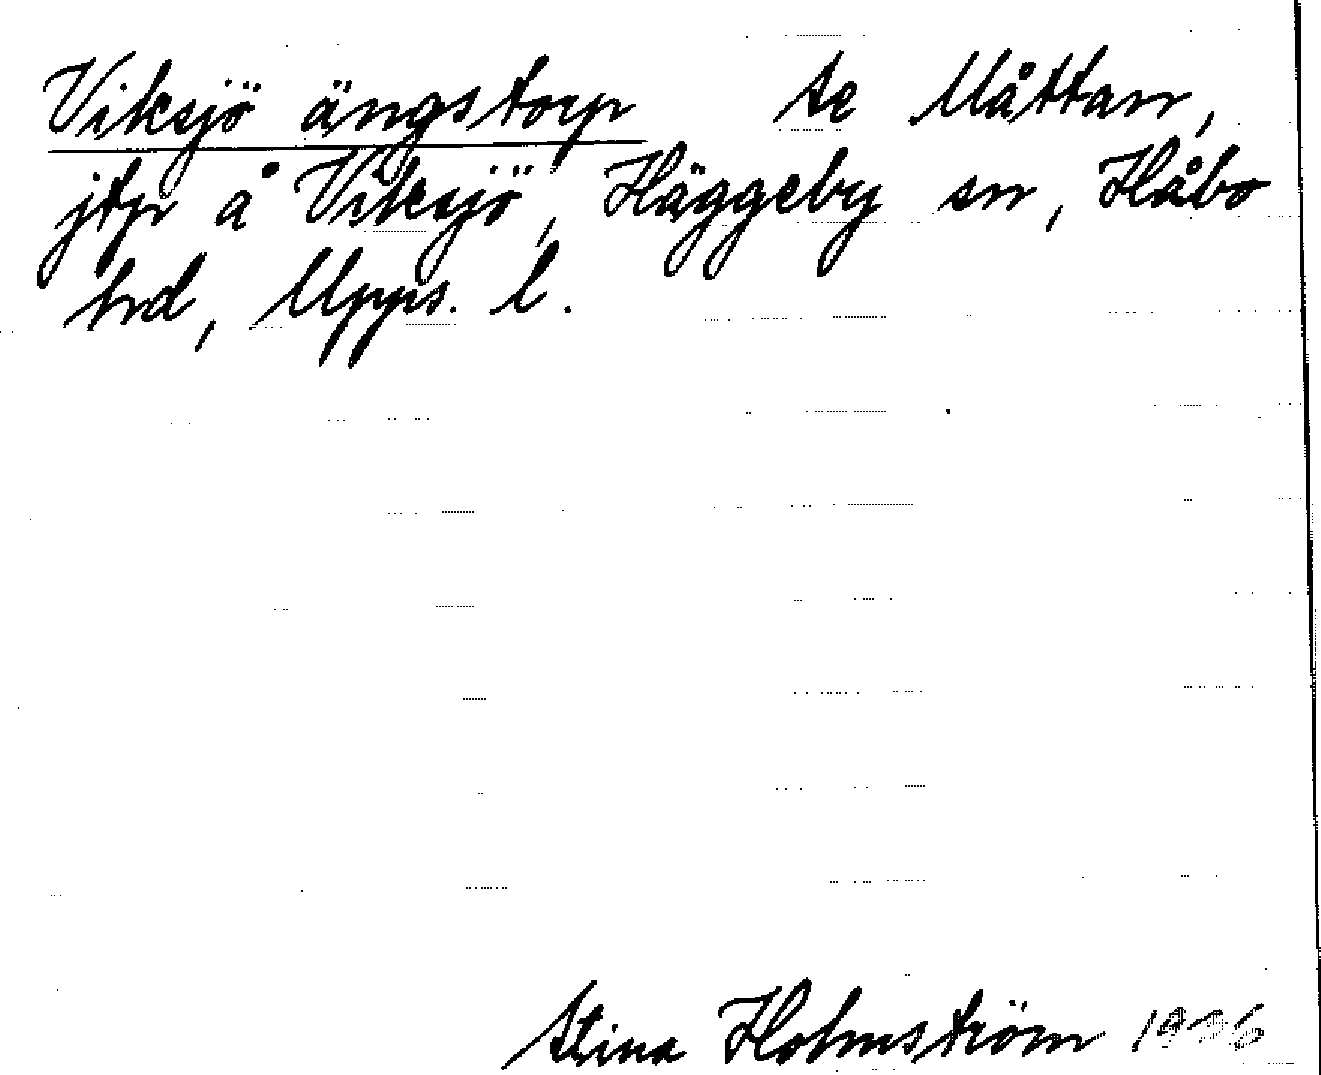 Viksjö ängstorp se Måttan,
jtp å Viksjö, Häggeby sn, Håbo
hrd, Upps. l.
Stina Holmström 1936